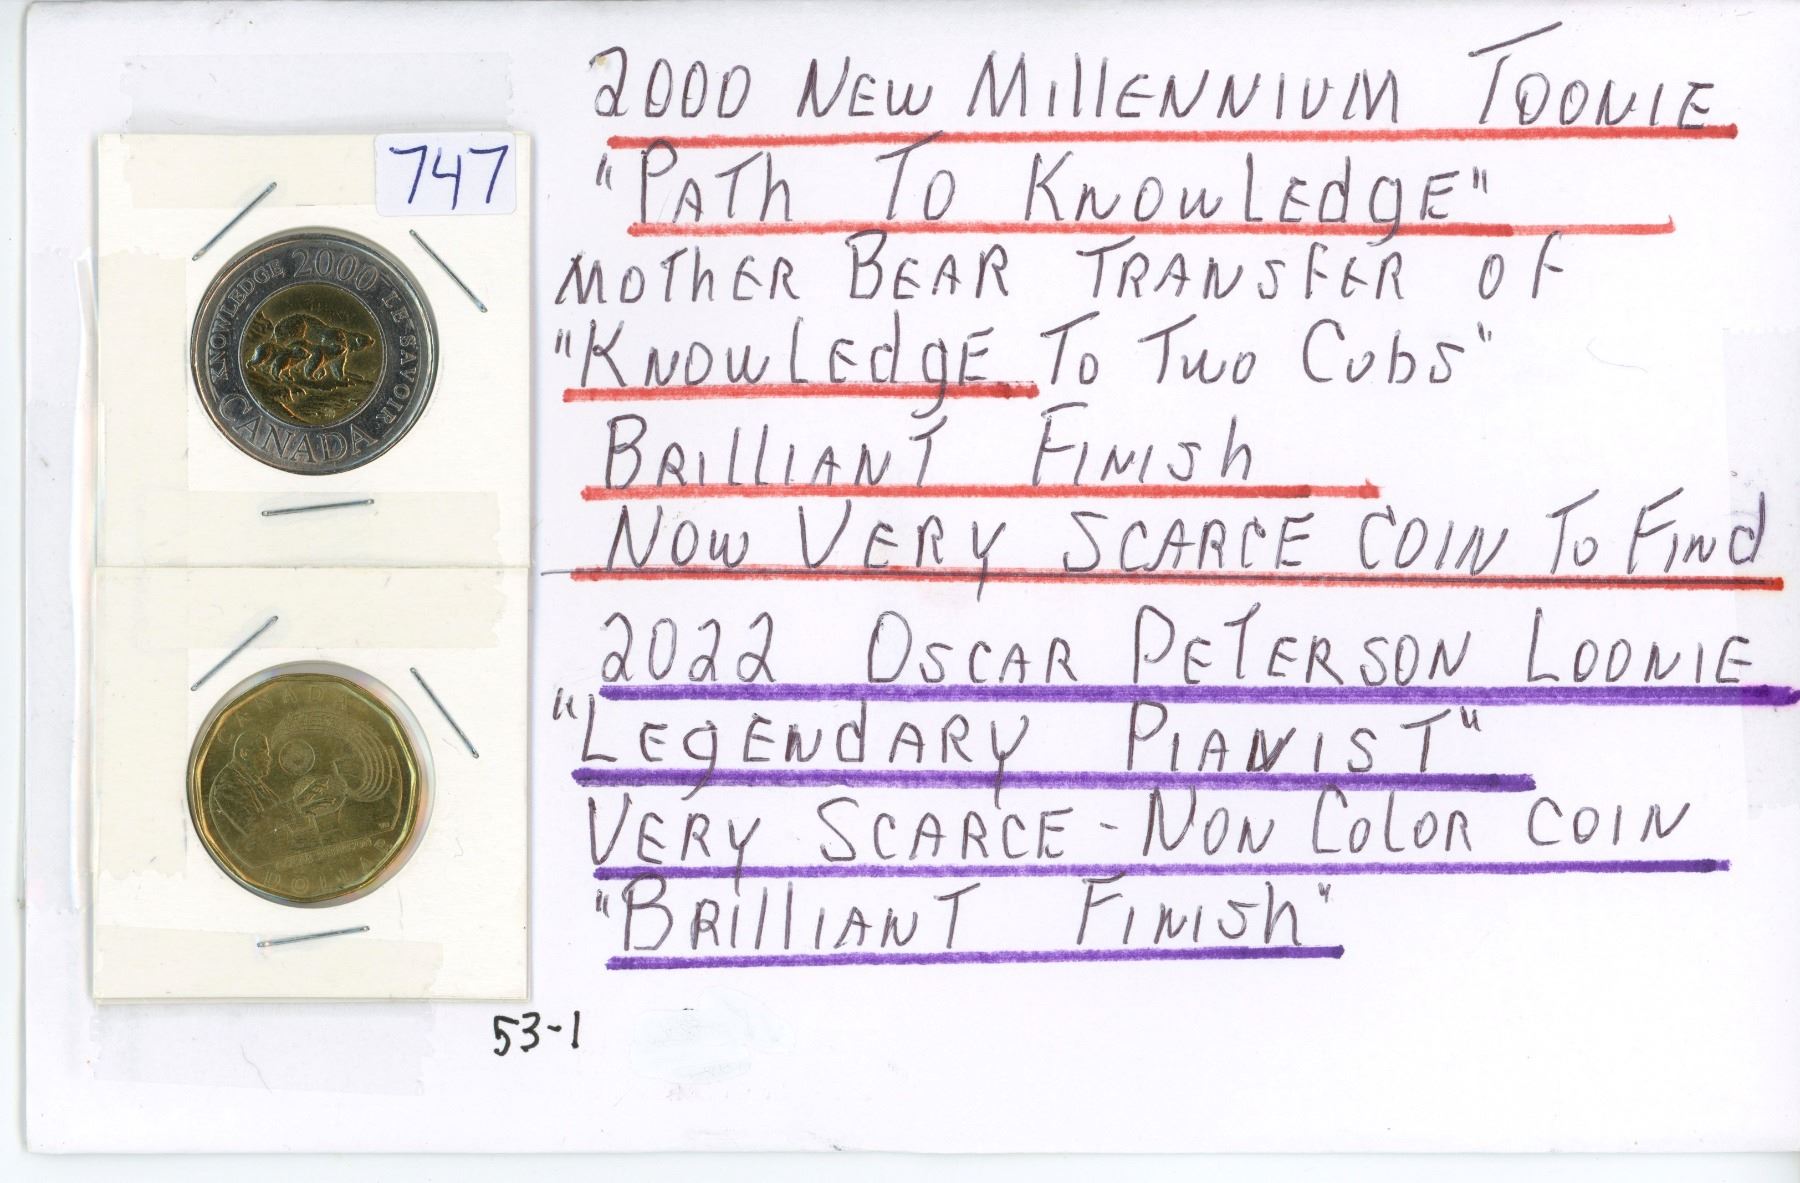 747
KNOWLEDGE 2000 LE SAVOIR
CANADA
CANADA
DOLLAR
2000 NEW MILLENNIUM TOONIE
"PATH TO KNOWLEDGE"
MOTHER BEAR TRANSFER OF
"KNOWLEDGE TO TWO CUBS"
BRILLIANT FINISH
NOW VERY SCARCE COIN TO FIND
2022 OSCAR PETERSON LOONIE
"LEGENDARY PIANIST"
VERY SCARCE - NON COLOR COIN
"BRILLIANT FINISH"
53-1